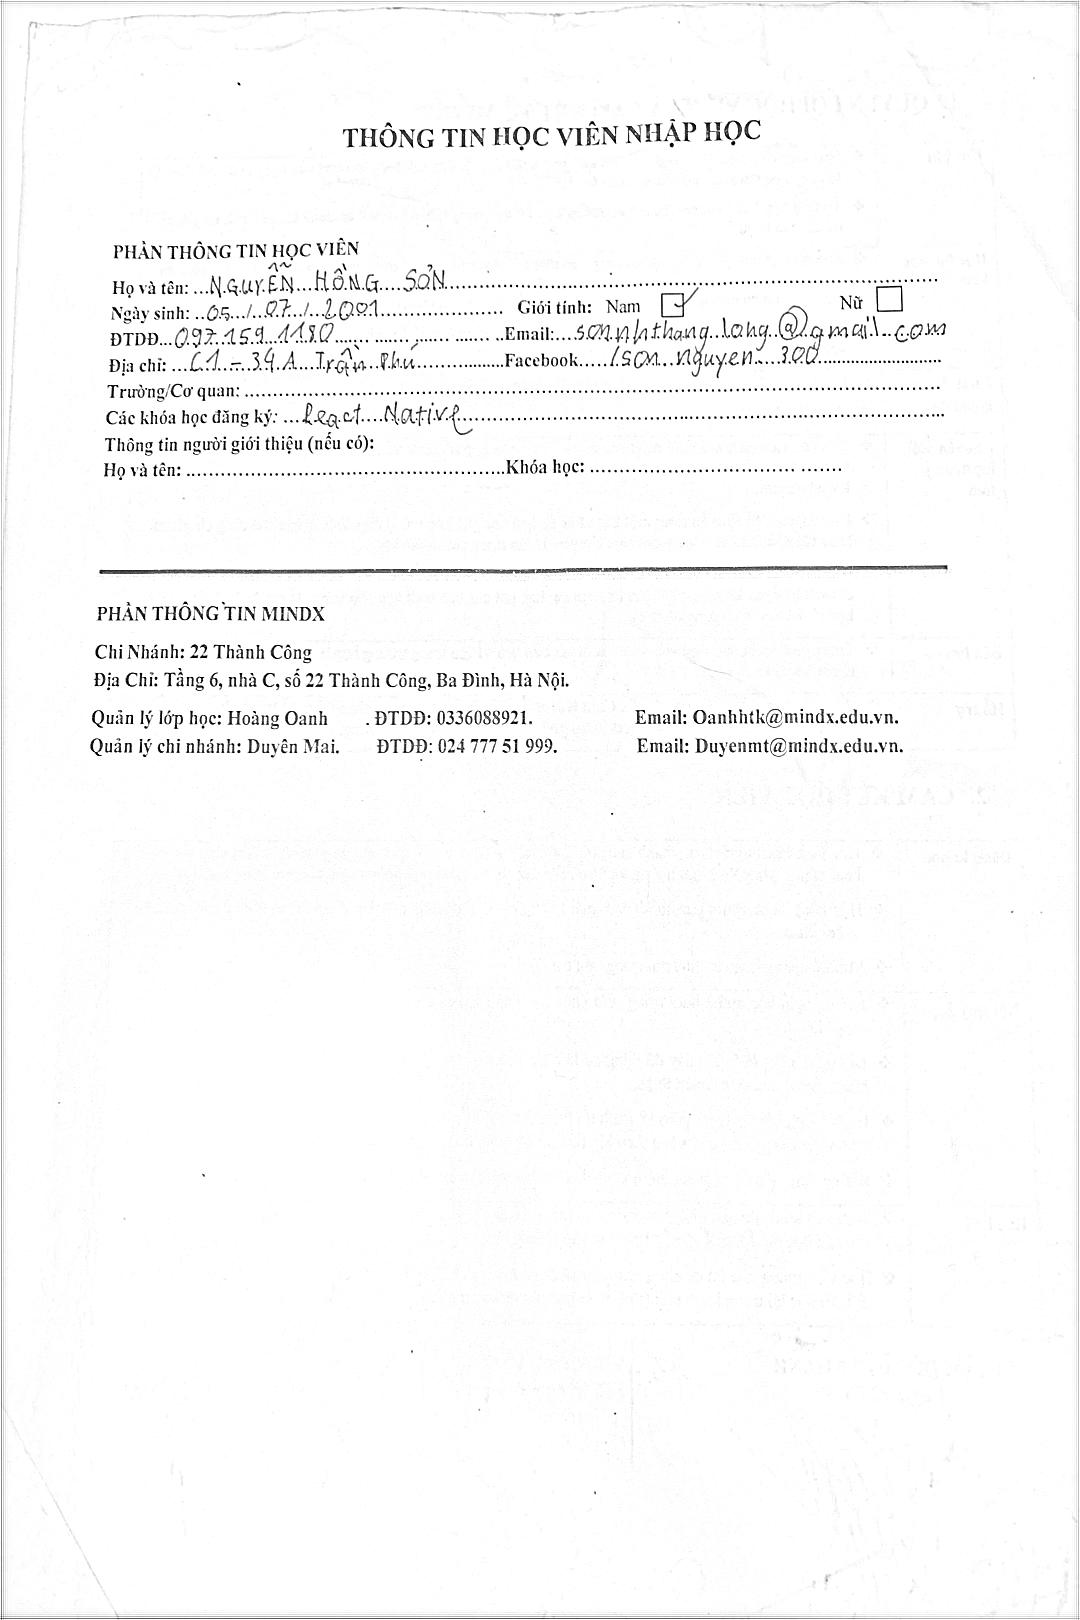 THÔNG TIN HỌC VIÊN NHẬP HỌC
PHẦN THÔNG TIN HỌC VIÊN
Họ và tên: NGUYỄN HỒNG SƠN
Ngày sinh: 05 / 07 / 2001 Giới tính: Nam ☑ Nữ ☐
ĐTDĐ 097 159 1180 Email: son.nhthanglong@gmail.com
Địa chỉ: C1 - 39A Trần Phú Facebook /son.nguyen.300
Trường/Cơ quan:
Các khóa học đăng ký: React Native
Thông tin người giới thiệu (nếu có):
Họ và tên: Khóa học:
PHẦN THÔNG TIN MINDX
Chi Nhánh: 22 Thành Công
Địa Chỉ: Tầng 6, nhà C, số 22 Thành Công, Ba Đình, Hà Nội.
Quản lý lớp học: Hoàng Oanh . ĐTDĐ: 0336088921. Email: Oanhhtk@mindx.edu.vn.
Quản lý chi nhánh: Duyên Mai. ĐTDĐ: 024 777 51 999. Email: Duyenmt@mindx.edu.vn.